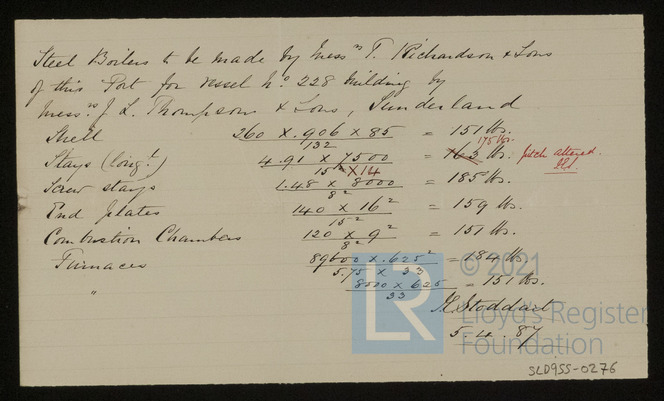 Steel Boilers to be made by Mess.rs T. Richardson & Sons
of this Port for vessel No. 228 building by
Mess.rs J. L. Thompson & Sons, Sunderland
Shell 260 x .906 x 85 / 132 = 151 lbs.
175 lbs.
Stays (long.l) 4.91 x 7500 / 15 x 14 = 163 lbs. pitch altered.
Screw stays 1.48 x 8000 / 8² = 185 lbs.
End plates 140 x 16² / 15² = 159 lbs.
Combustion Chambers 120 x 9² / 8² = 151 lbs.
Furnaces 89600 x .625² / 5.75 x 33 = 184 lbs.
" 8000 x 625 / 33 = 151 lbs.
Stoddart
5.4.87
© 2021
LR
Lloyd's Register
Foundation
SLD955-0276